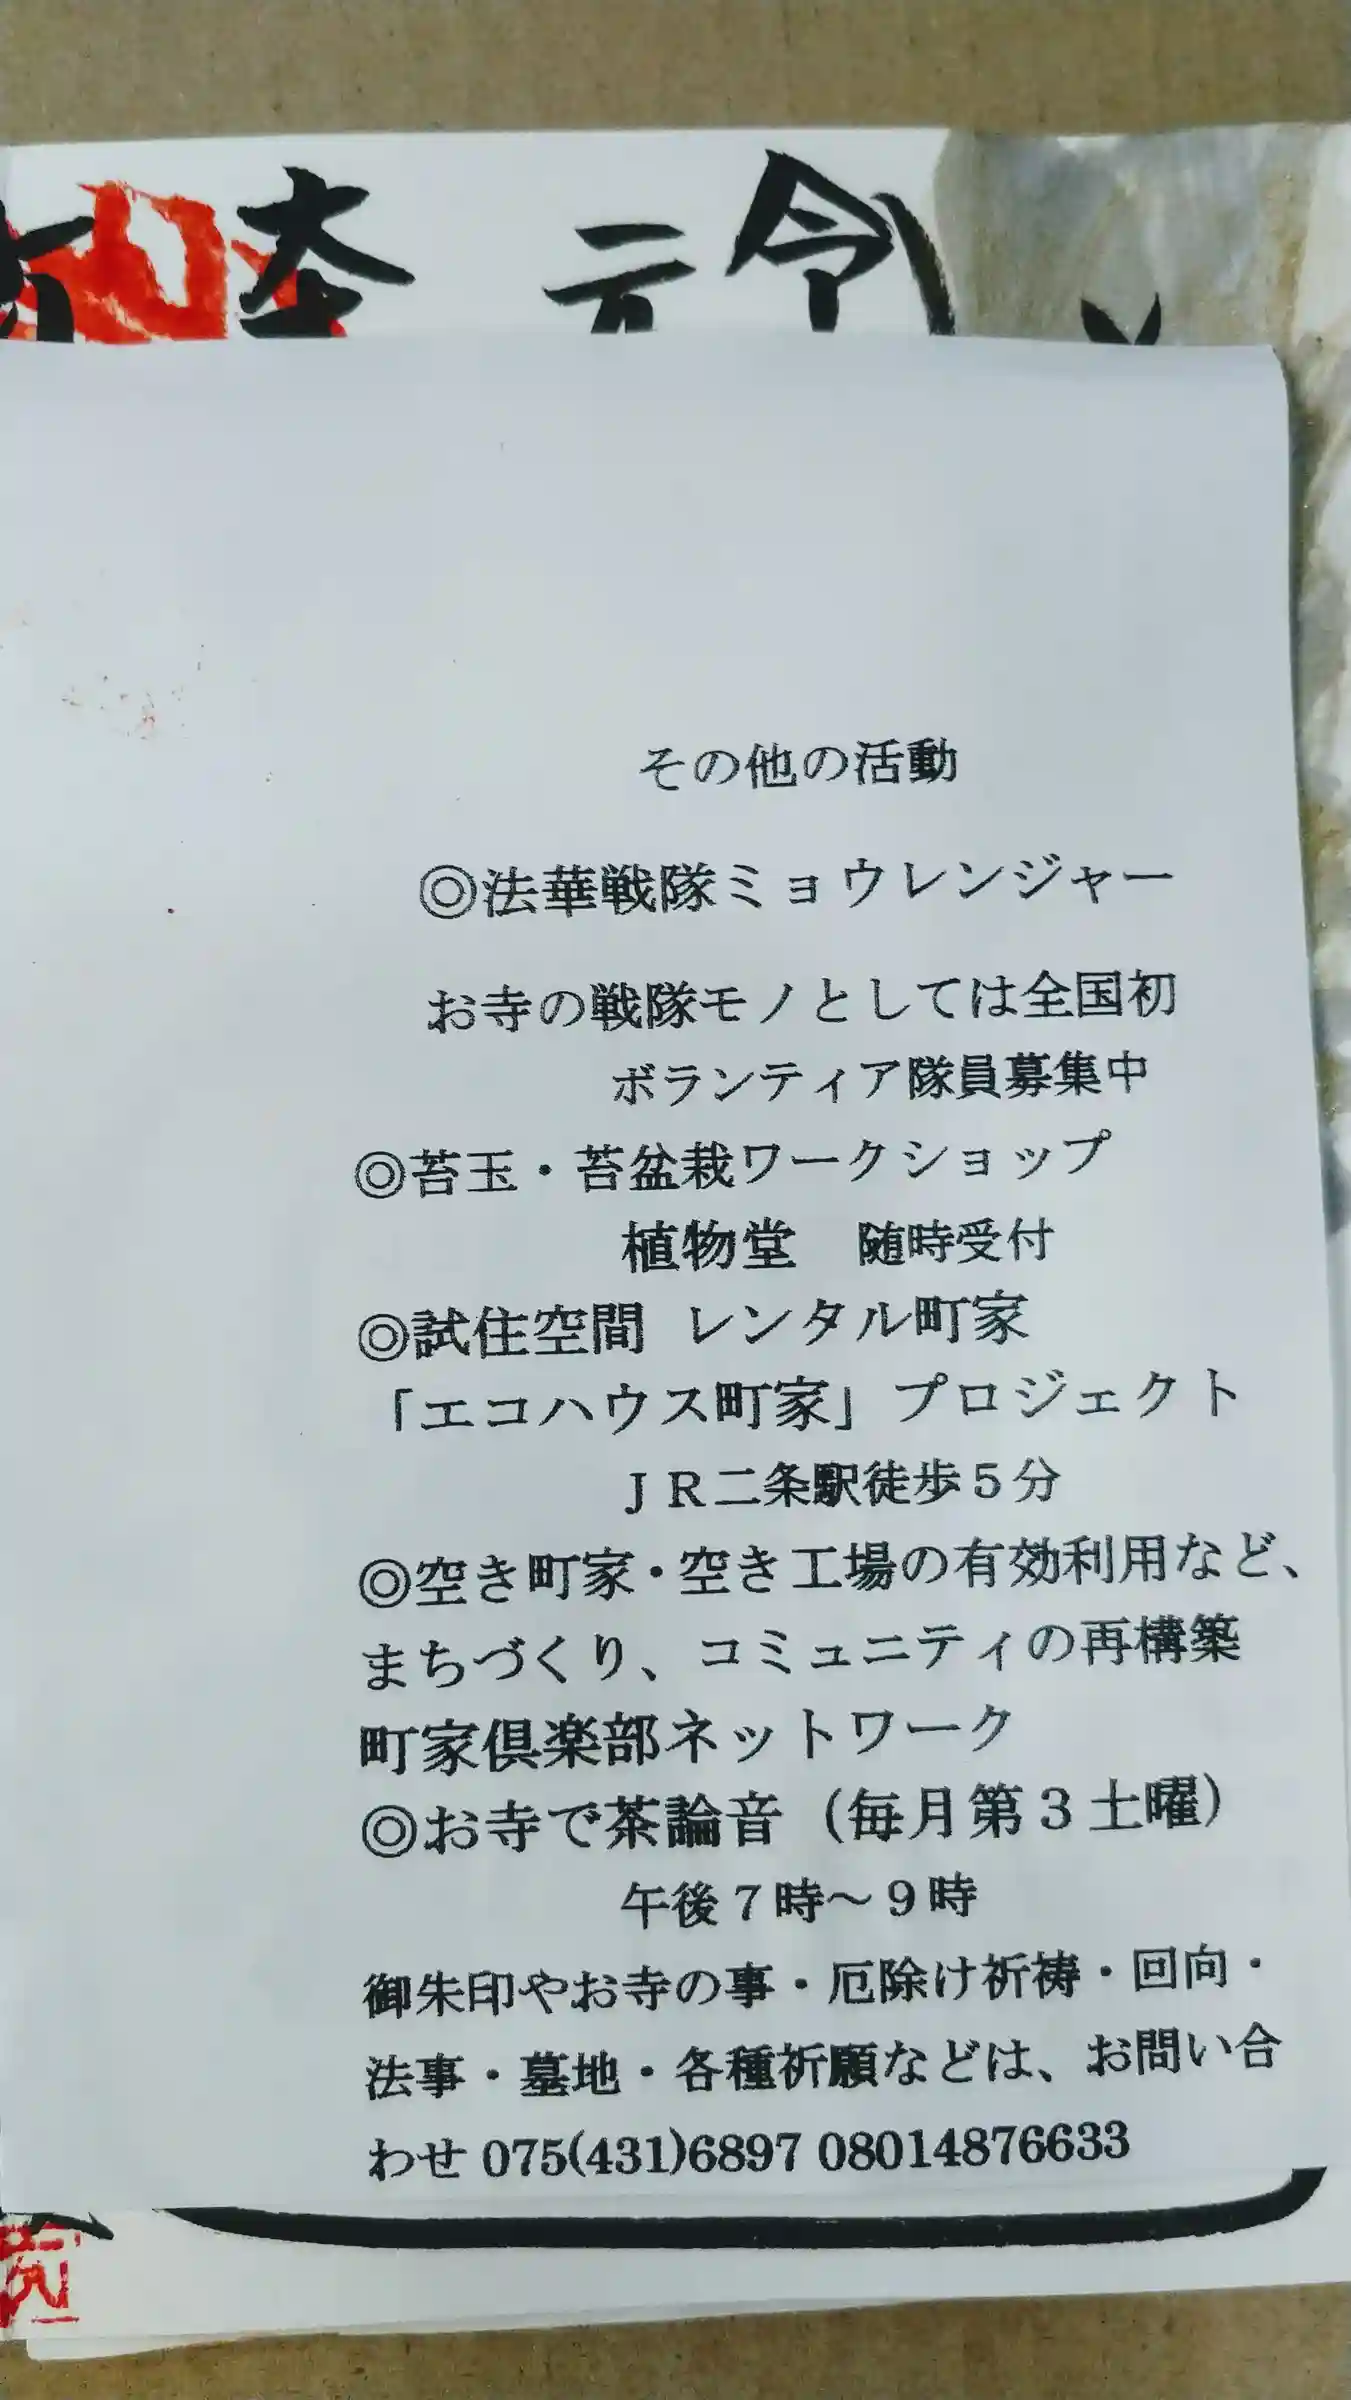 令
その他の活動
◎法華戦隊ミョウレンジャー
お寺の戦隊モノとしては全国初
ボランティア隊員募集中
◎苔玉・苔盆栽ワークショップ
植物堂　随時受付
◎試住空間 レンタル町家
「エコハウス町家」プロジェクト
ＪＲ二条駅徒歩５分
◎空き町家・空き工場の有効利用など、
まちづくり、コミュニティの再構築
町家倶楽部ネットワーク
◎お寺で茶論音（毎月第３土曜）
午後７時～９時
御朱印やお寺の事・厄除け祈祷・回向・
法事・墓地・各種祈願などは、お問い合
わせ 075(431)6897 08014876633